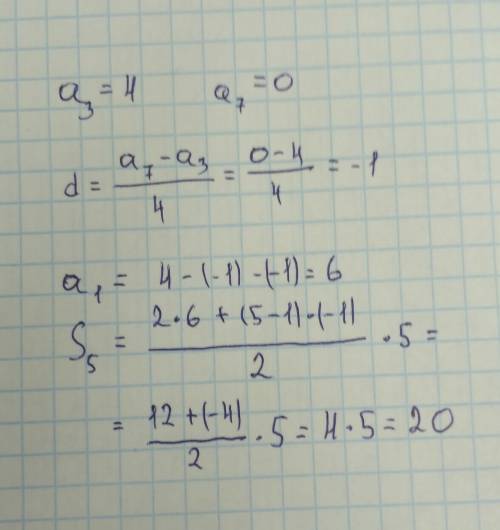 a₃ = 4 a₇ = 0
d = (a₇ - a₃)/4 = (0 - 4)/4 = -1
a₁ = 4 - (-1) - (-1) = 6
S₅ = (2·6 + (5-1)·(-1))/2 · 5 =
= (12 + (-4))/2 · 5 = 4·5 = 20